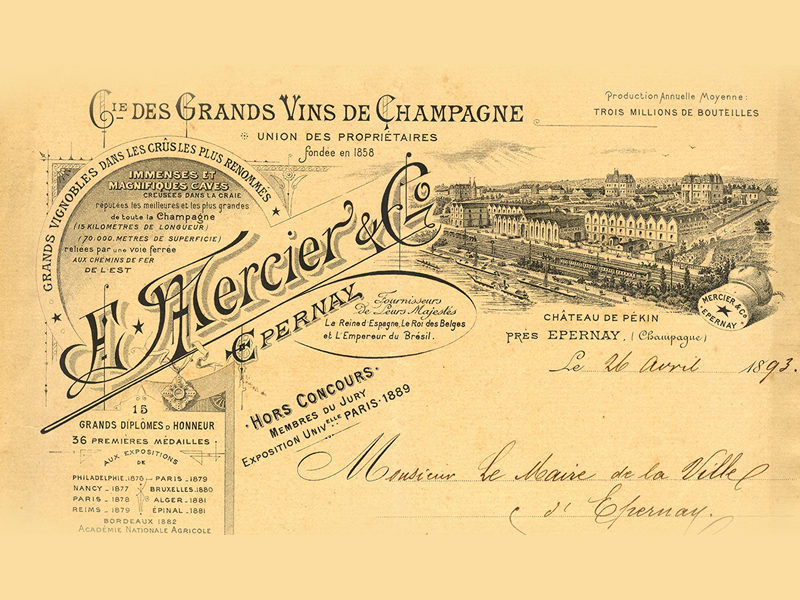 Cie DES GRANDS VINS DE CHAMPAGNE
UNION DES PROPRIÉTAIRES
fondée en 1858
Production Annuelle Moyenne:
TROIS MILLIONS DE BOUTEILLES
GRANDS VIGNOBLES DANS LES CRÛS LES PLUS RENOMMÉS
IMMENSES ET
MAGNIFIQUES CAVES
CREUSÉES DANS LA CRAIE
réputées les meilleures et les plus grandes
de toute la Champagne
(15 KILOMETRES DE LONGUEUR)
(70.000 METRES DE SUPERFICIE)
reliées par une voie ferrée
AUX CHEMINS DE FER
DE L'EST
E. Mercier & Co
EPERNAY
Fournisseurs
De Leurs Majestés
La Reine d'Espagne, Le Roi des Belges
et L'Empereur du Brésil.
MERCIER & Co
EPERNAY
CHÂTEAU DE PÉKIN
PRÈS EPERNAY. (Champagne)
Le 26 Avril 1893.
HORS CONCOURS.
MEMBRES DU JURY
EXPOSITION UNIVelle PARIS-1889
15
GRANDS DIPLÔMES D'HONNEUR
36 PREMIÈRES MÉDAILLES
AUX EXPOSITIONS
DE
PHILADELPHIE.1876 PARIS -1879
NANCY -1877 BRUXELLES.1880
PARIS -1878 ALGER -1881
REIMS -1879 ÉPINAL -1881
BORDEAUX 1882
ACADÉMIE NATIONALE AGRICOLE
Monsieur Le Maire de la Ville
d'Epernay.